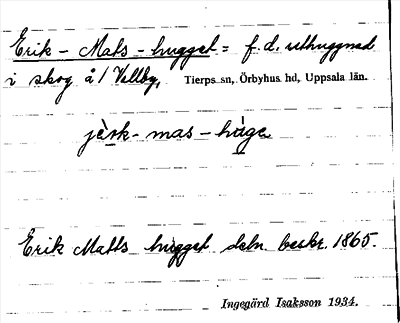 Erik - Mats - hugget = f. d. uthuggned
i skog å / Vellby, Tierps sn, Örbyhus hd, Uppsala län.
jèrk - mas - hàge
Erik Matts hugget deln. beskr. 1865.
Ingegärd Isaksson 1934.